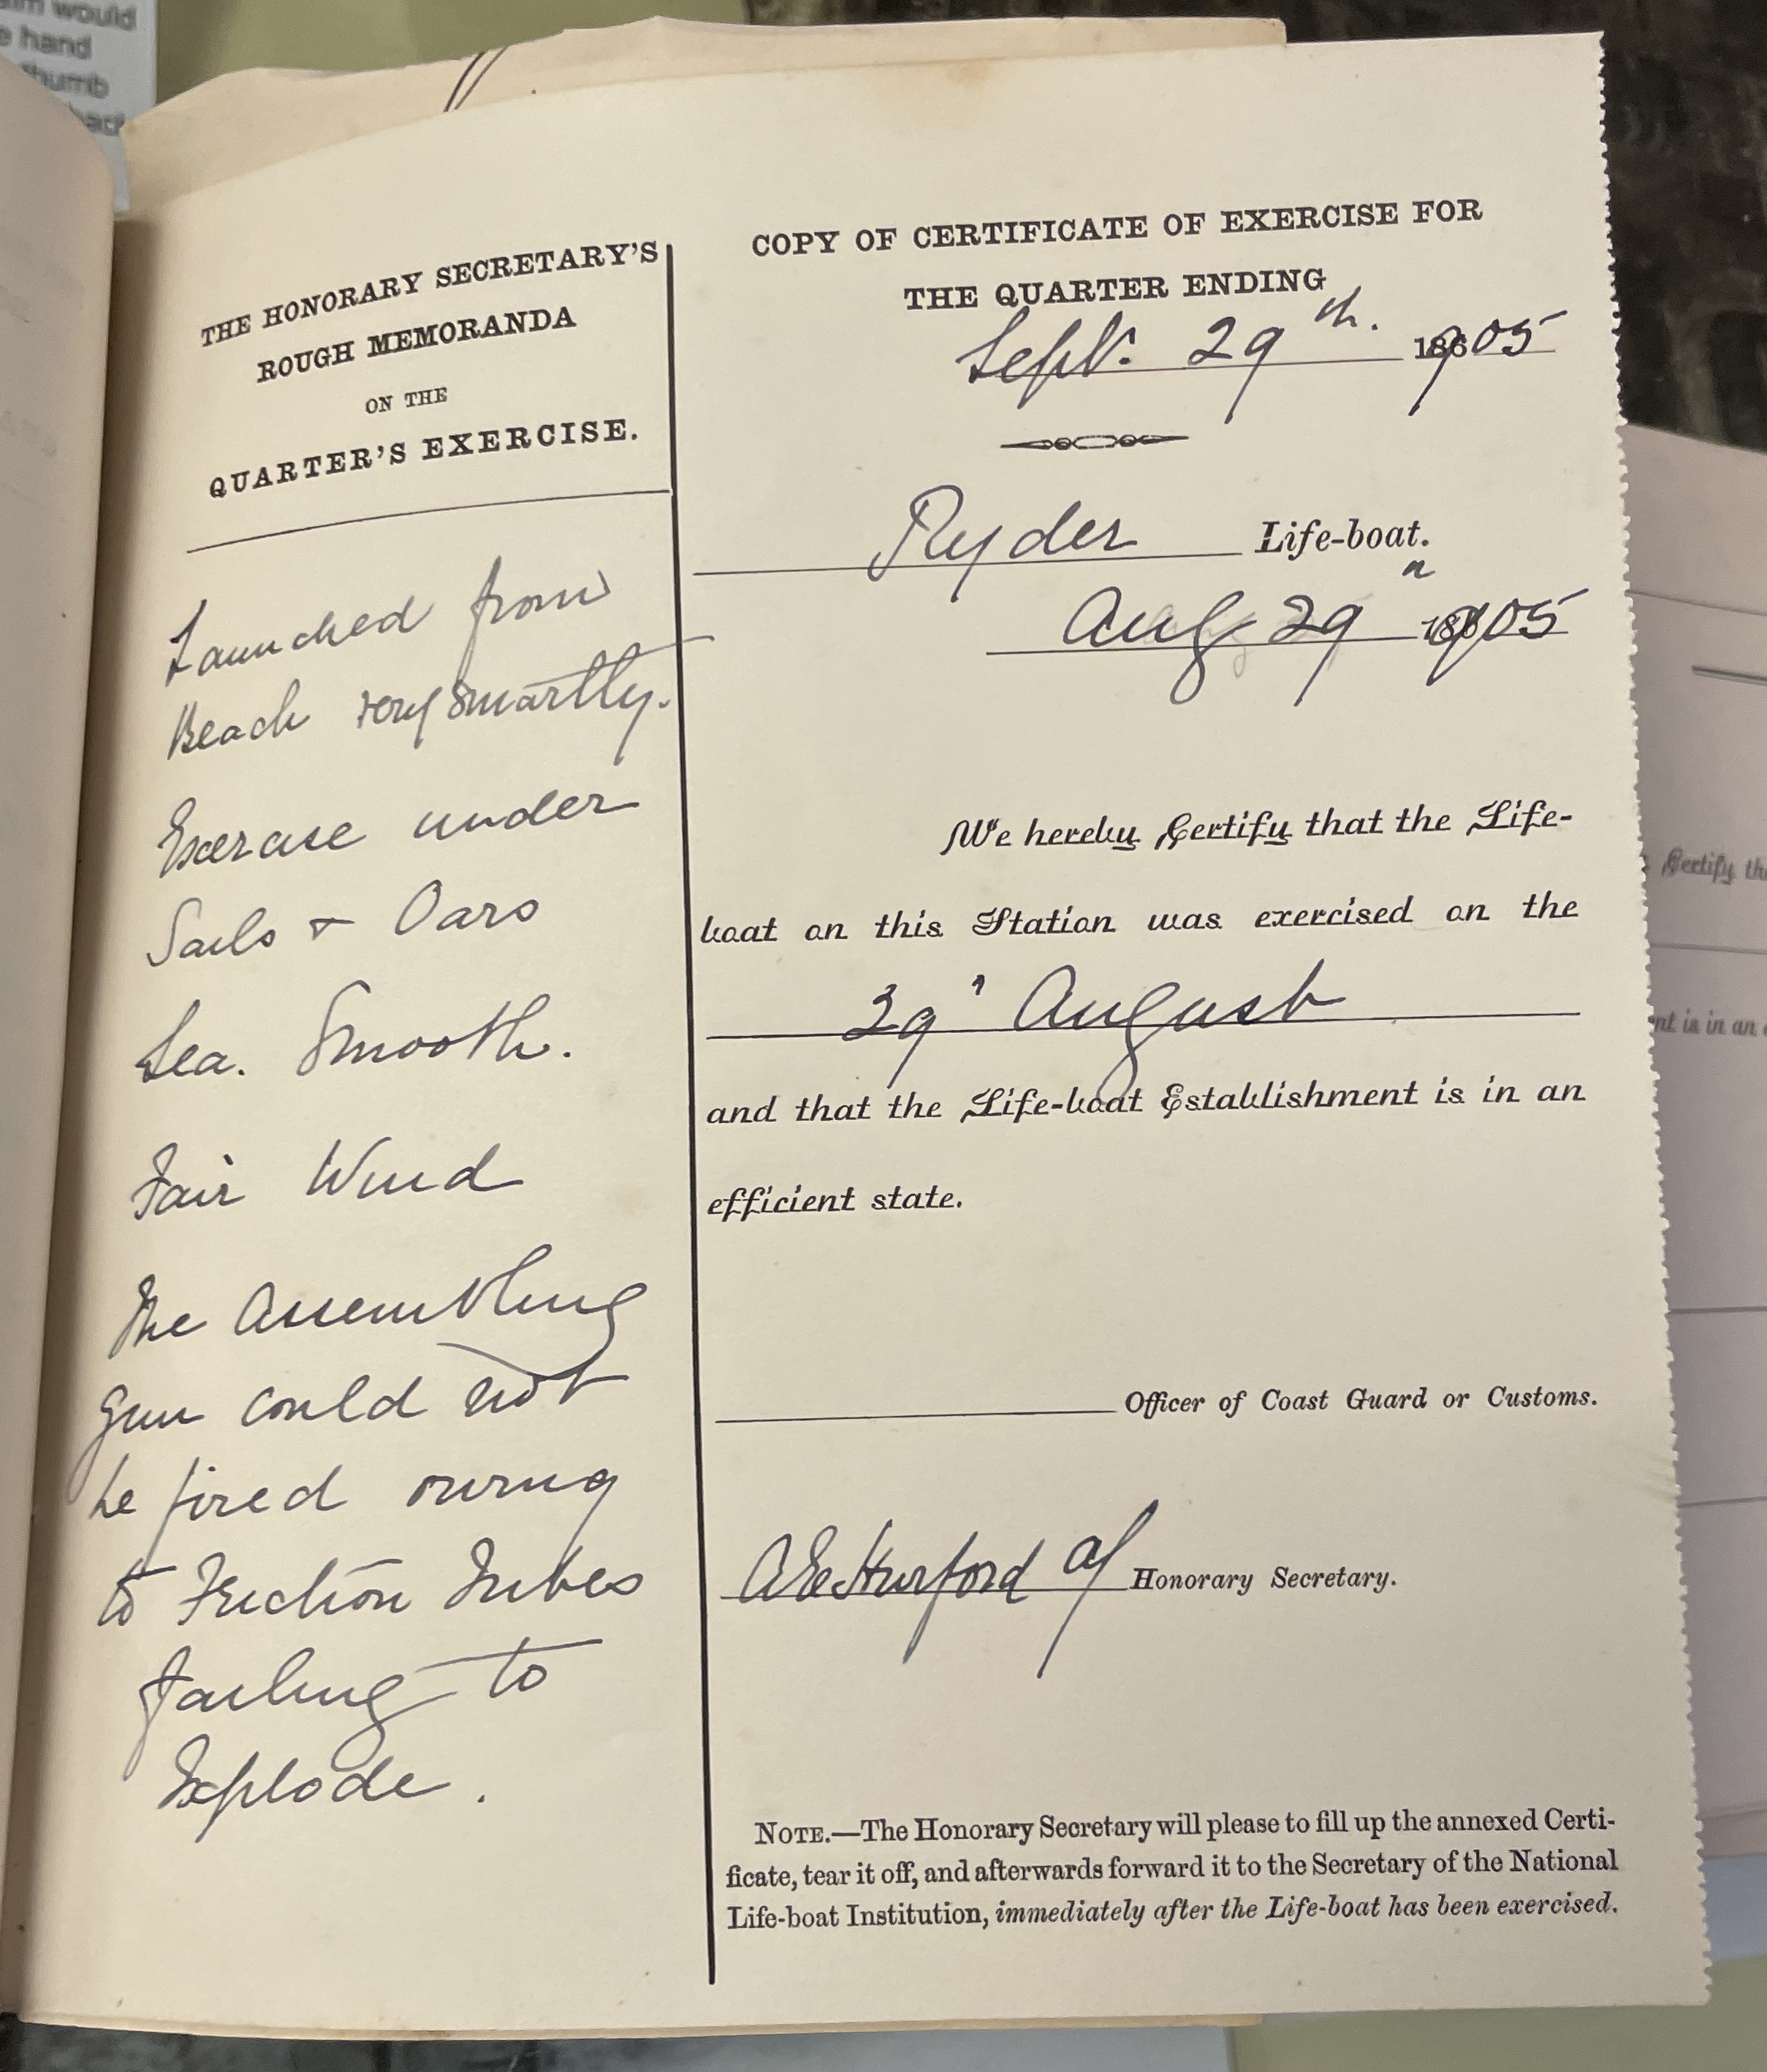 THE HONORARY SECRETARY'S
ROUGH MEMORANDA
ON THE
QUARTER'S EXERCISE.
Launched from
Beach very smartly.
Exercise under
Sails & Oars
Sea. Smooth.
Fair Wind
The Assembling
gun could not
be fired owing
to Friction Tubes
failing to
Explode.
COPY OF CERTIFICATE OF EXERCISE FOR
THE QUARTER ENDING
Sept. 29th. 1905
Ryder Life-boat.
Aug 29 1905
We hereby Certify that the Life-
boat on this Station was exercised on the
29 August
and that the Life-boat Establishment is in an
efficient state.
Officer of Coast Guard or Customs.
Hurford Honorary Secretary.
NOTE.—The Honorary Secretary will please to fill up the annexed Certi-
ficate, tear it off, and afterwards forward it to the Secretary of the National
Life-boat Institution, immediately after the Life-boat has been exercised.
would
hand
thumb
Certify
is in an